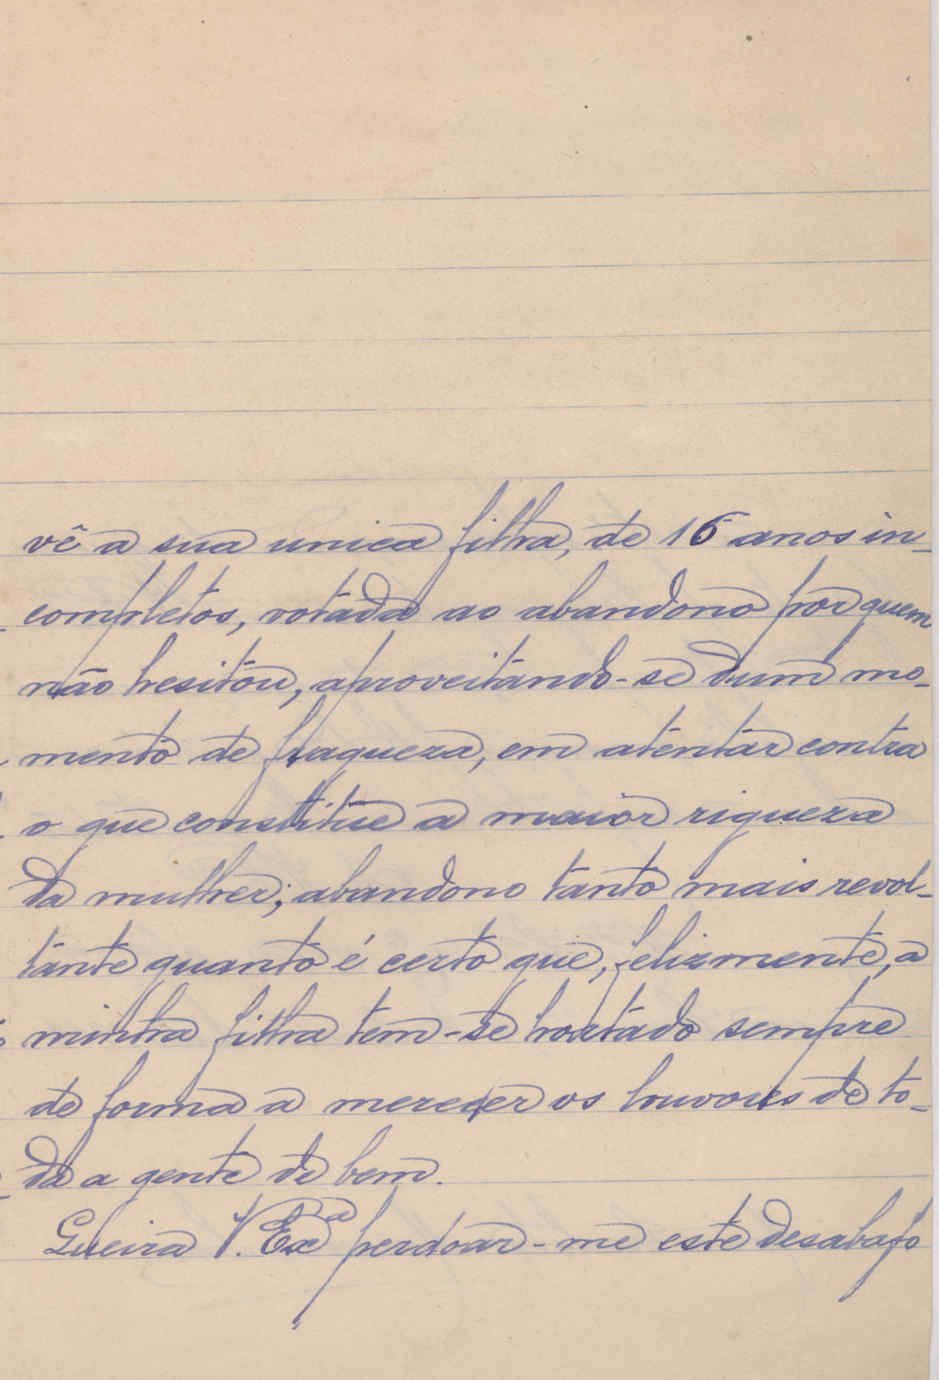 vê a sua unica filha, de 16 anos in-
completos, votada ao abandono por quem
não hesitou, aproveitando-se dum mo-
mento de fraqueza, em atentar contra
o que constitue a maior riqueza
da mulher; abandono tanto mais revol-
tante quanto é certo que, felizmente, a
minha filha tem-se portado sempre
de forma a merecer os louvores de to-
da a gente de bem.
Queira V. Exª perdoar-me este desabafo